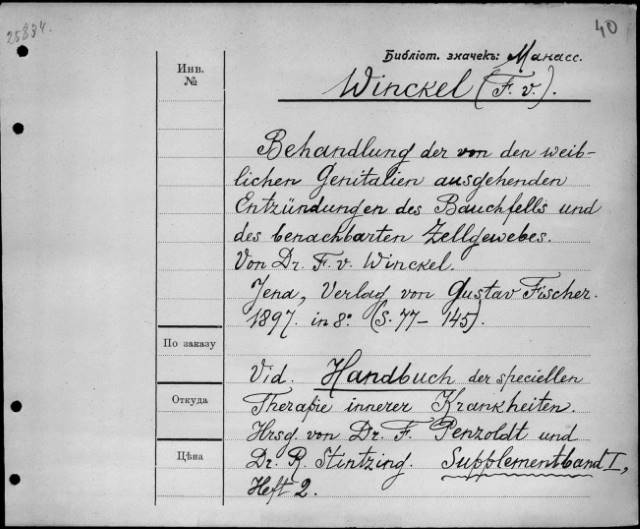 25834.
40
Инв.
№
Библіот. значекъ: Манасс.
Winckel (F. v.).
Behandlung der von den weib-
lichen Genitalien ausgehenden
Entzündungen des Bauchfells und
des benachbarten Zellgewebes.
Von Dr. F. v. Winckel.
Jena, Verlag von Gustav Fischer.
1897. in 8°. (S. 77-145).
По заказу
Vid. Handbuch der speciellen
Откуда
Therapie innerer Krankheiten.
Hrsg. von Dr. F. Penzoldt und
Цѣна
Dr. R. Stintzing. Supplementband I,
Heft 2.